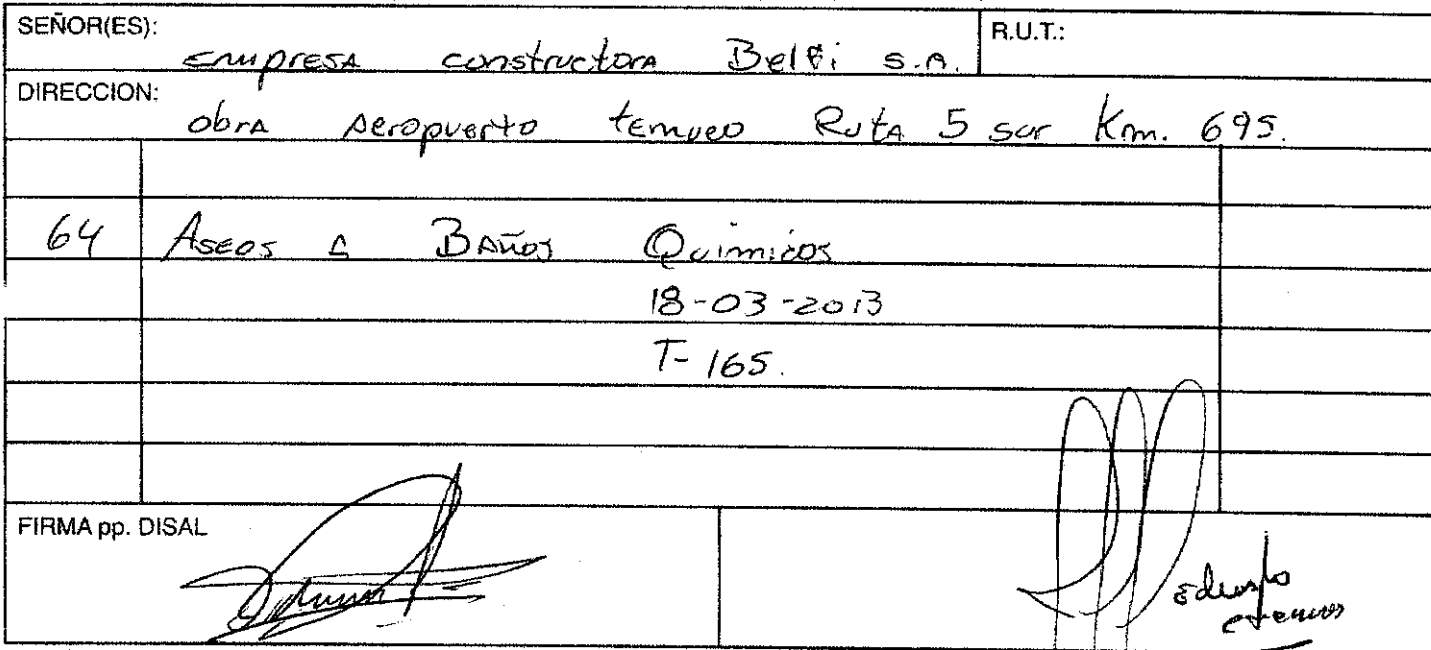 SEÑOR(ES): Empresa constructora Belfi s.A. R.U.T.:
DIRECCION: obra Aeropuerto temuco Ruta 5 sur Km. 695.
64 Aseos A Baños Quimicos
18-03-2013
T-165.
FIRMA pp. DISAL
Eduardo